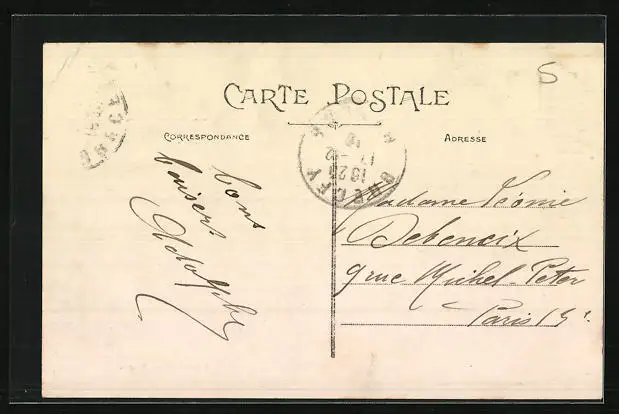 5
CARTE POSTALE
CORRESPONDANCE
ADRESSE
bons
baisers
Adolphe
Madame Léonie
9 rue Michel-Peter
Paris 13